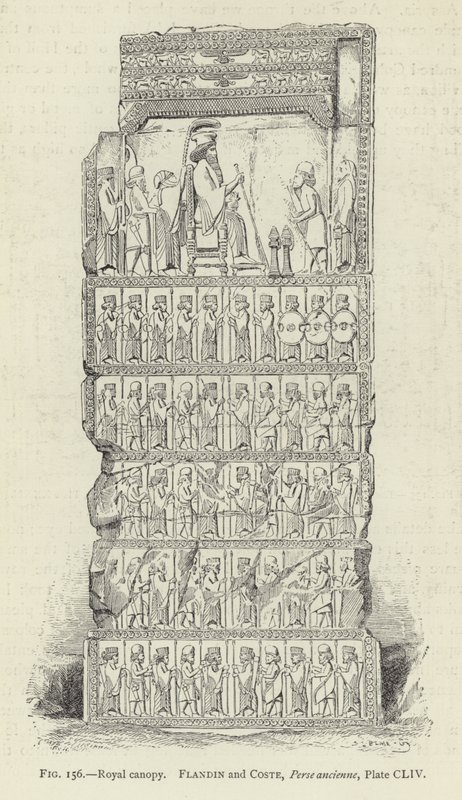 FIG. 156.—Royal canopy. FLANDIN and COSTE, Perse ancienne, Plate CLIV.